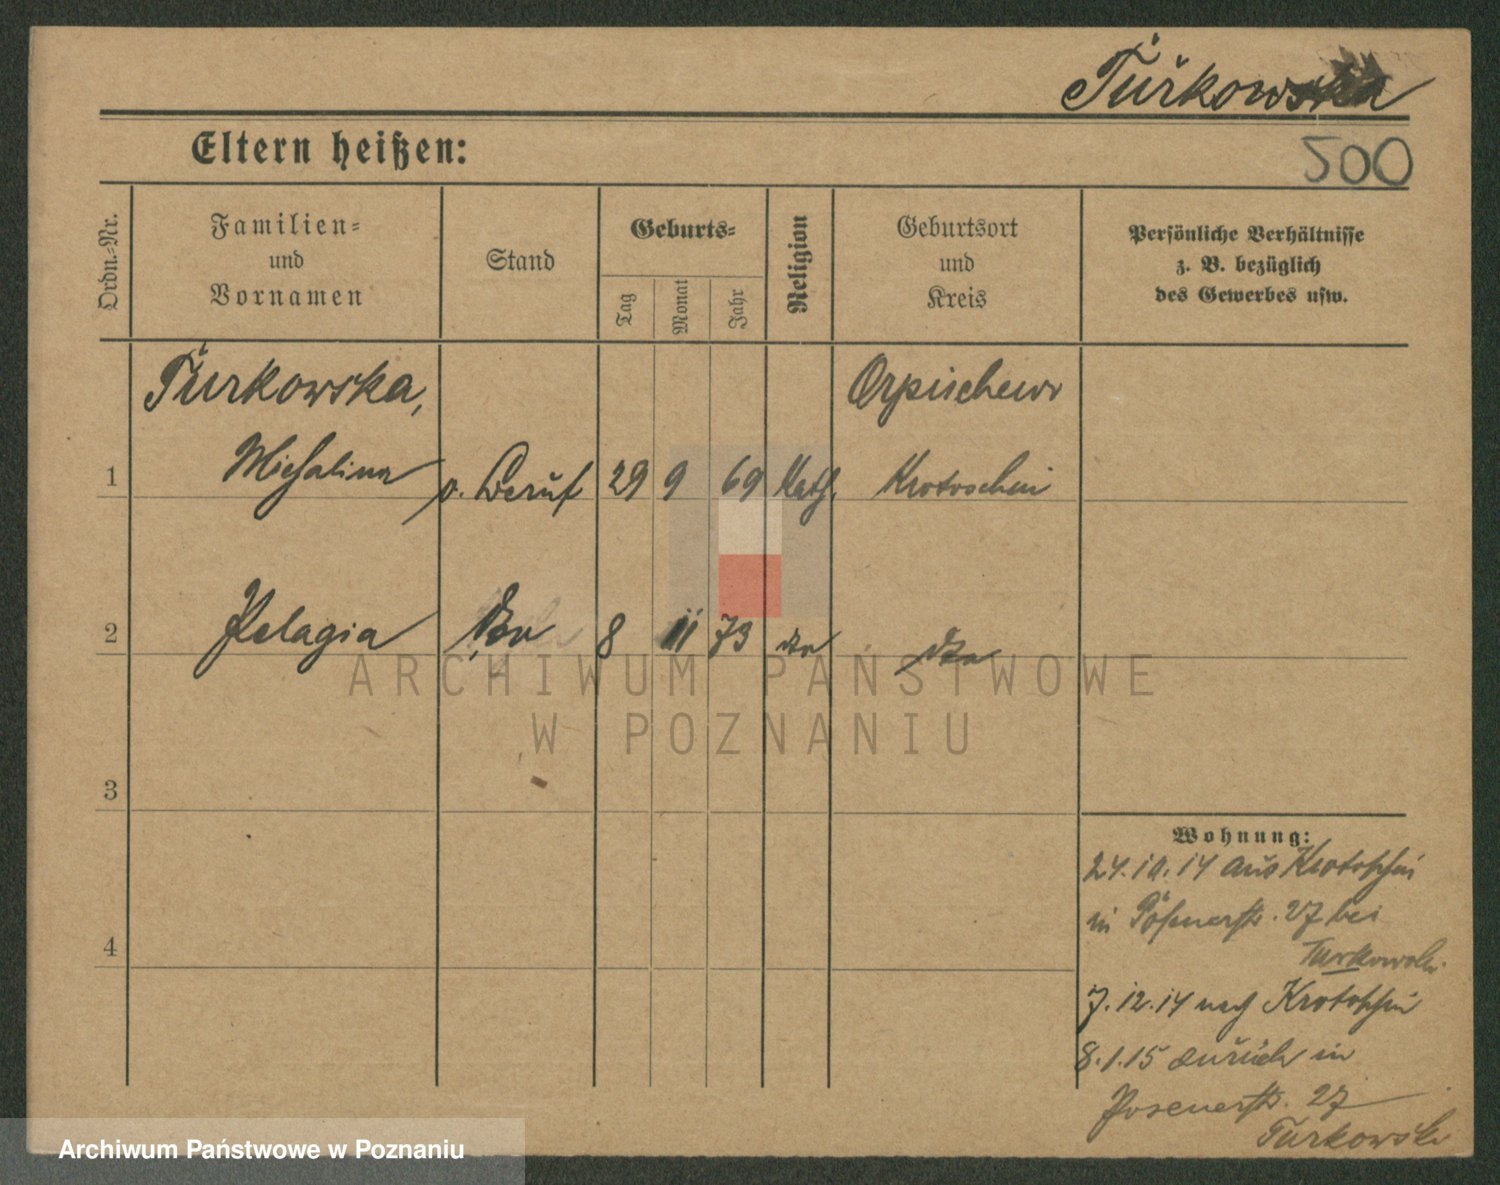 Turkowska
Eltern heißen:
500
Ordn.-Nr.
Familien-
und
Vornamen
Stand
Geburts-
Tag
Monat
Jahr
Religion
Geburtsort
und
Kreis
Persönliche Verhältnisse
z. B. bezüglich
des Gewerbes usw.
Turkowska,
Orpischewo
1 Michalina o. Beruf 29 9 69 Kath. Krotoschin
2 Pelagia dto 8 11 73 dto dto
3
4
Wohnung:
24.10.14 aus Krotoschin
in Posenerstr. 27 bei
Turkowski
7.12.14 nach Krotoschin
8.1.15 zurück in
Posenerstr. 27
Turkowski
ARCHIWUM PAŃSTWOWE
W POZNANIU
Archiwum Państwowe w Poznaniu